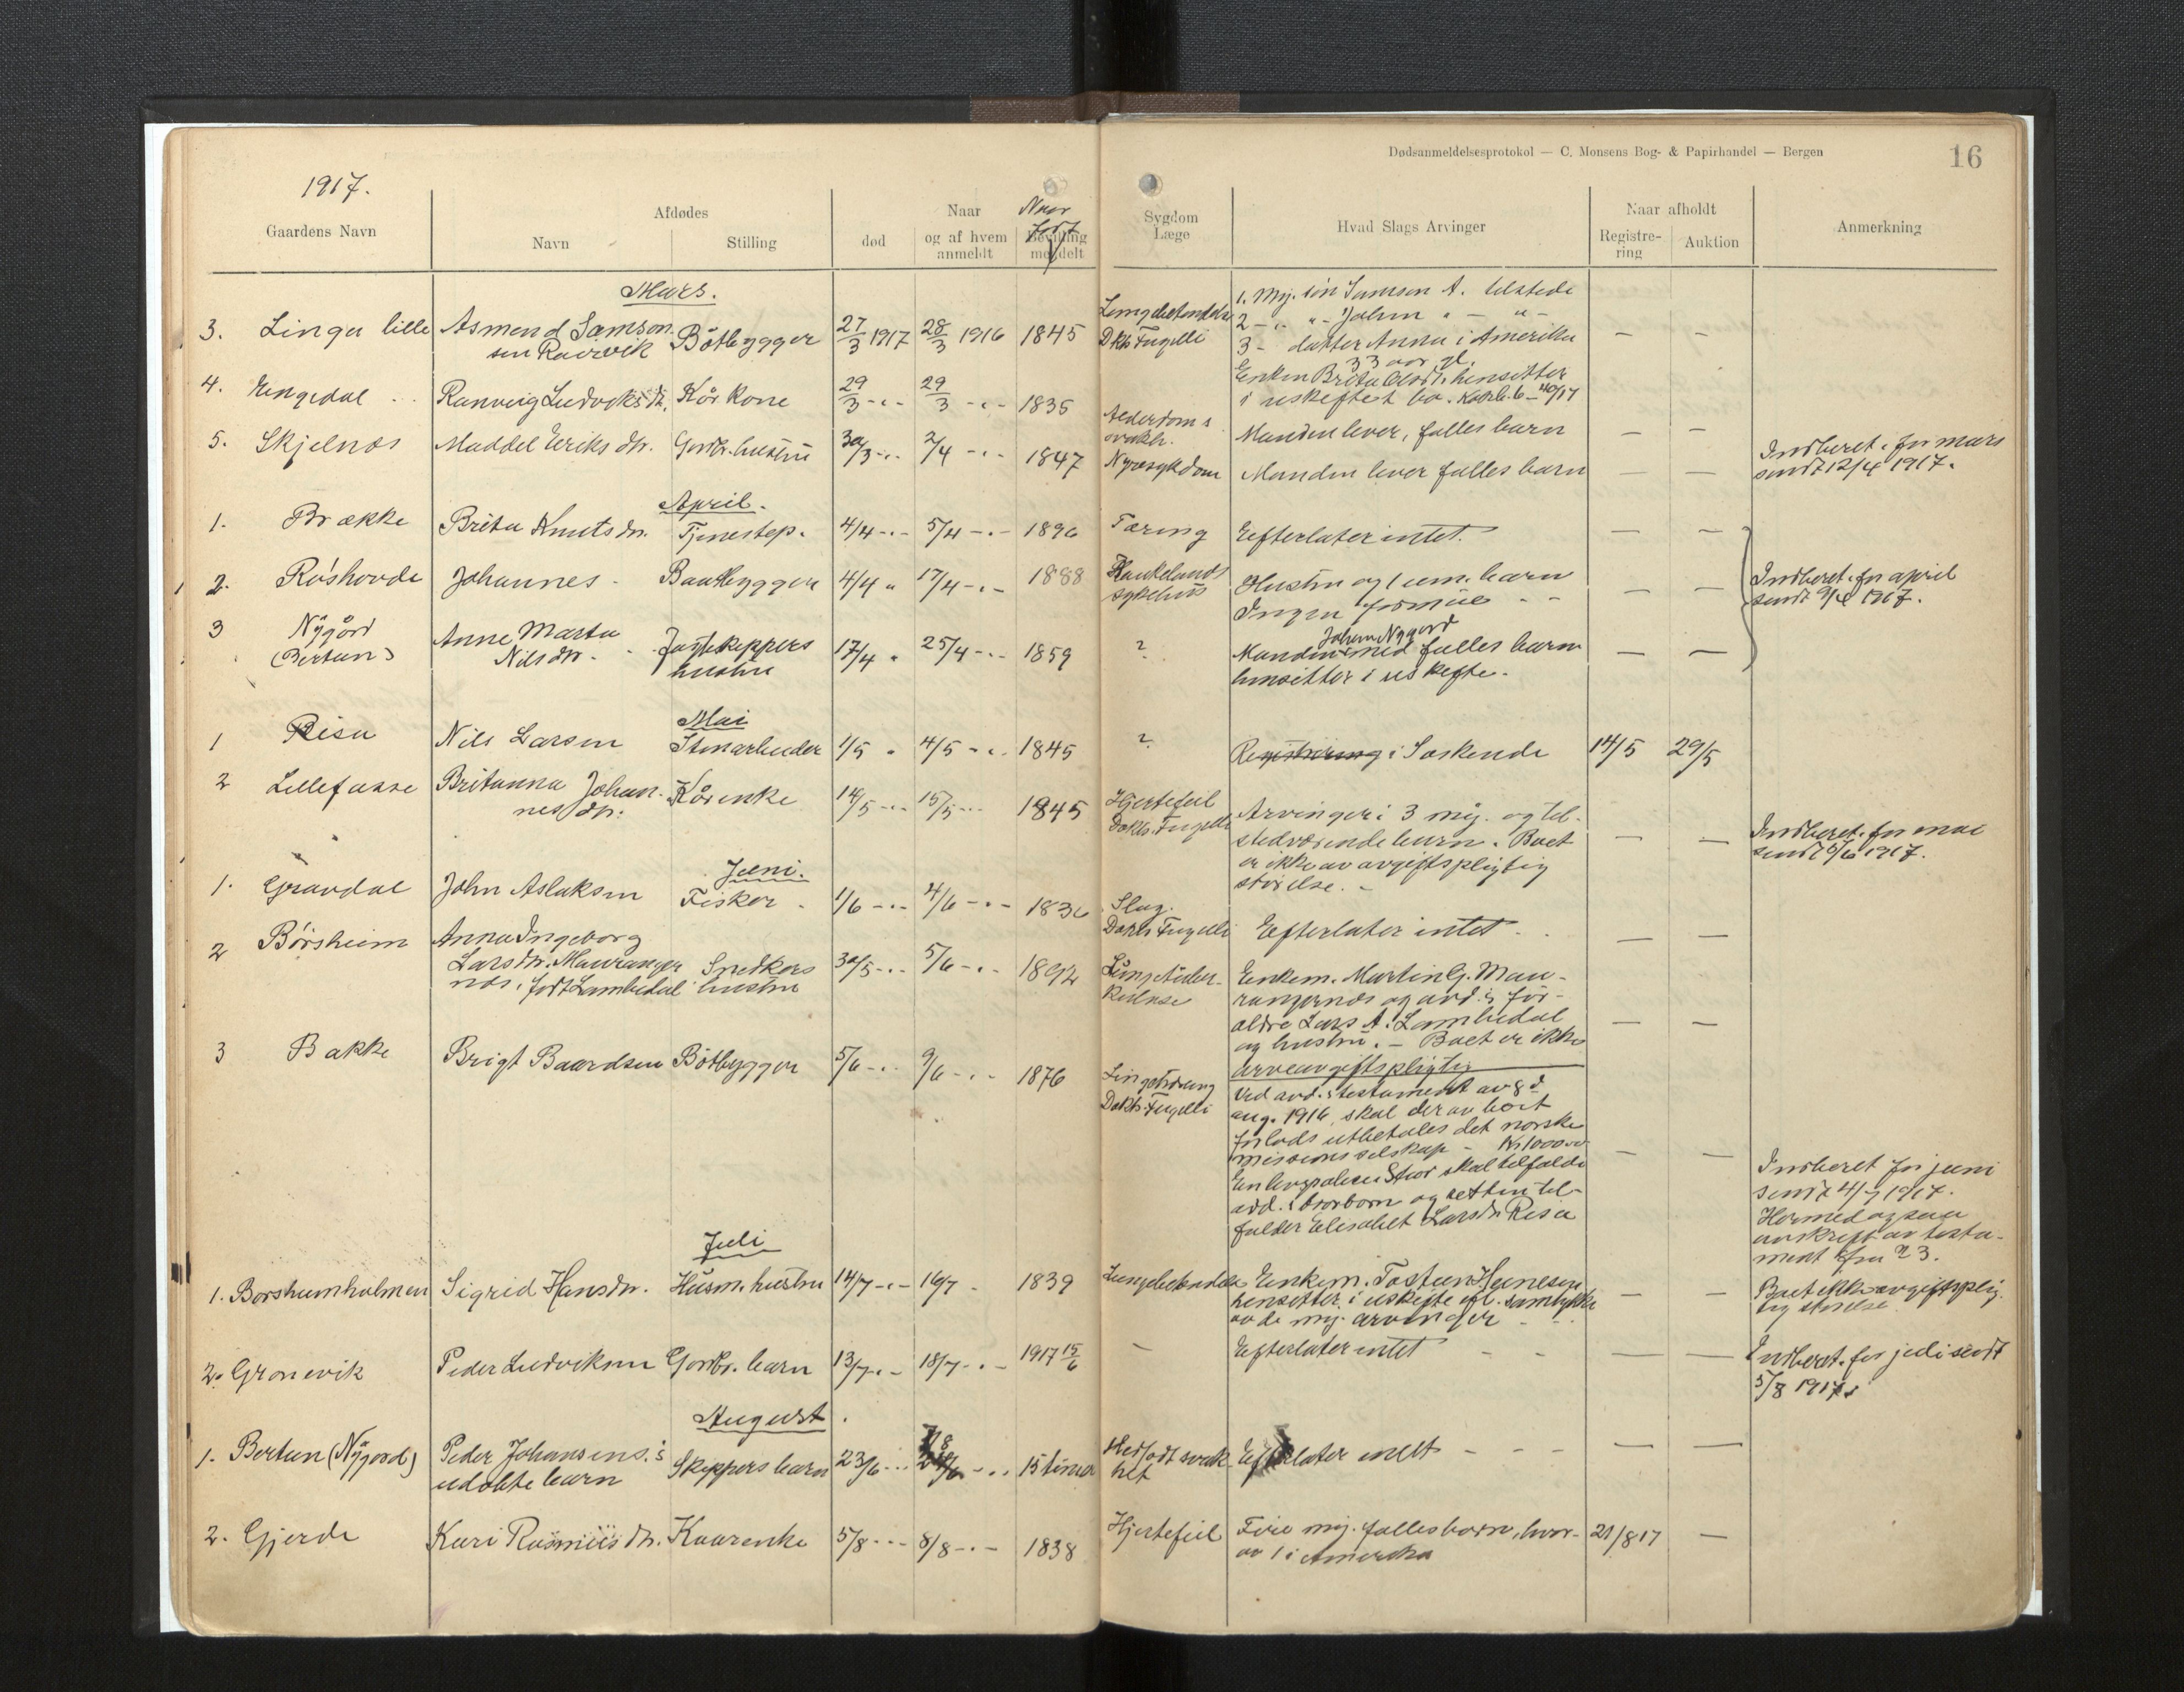 Dødsanmeldelsesprotokol — C. Monsens Bog- & Papirhandel — Bergen
16
1917.
Gaardens Navn
Afdødes
Navn
Stilling
Naar
død
og af hvem
anmeldt
Bevilling
meddelt
Naar
født
Sygdom
Læge
Hvad Slags Arvinger
Naar afholdt
Registre-
ring
Auktion
Anmerkning
Mars.
3. Linga lille
Asmend Samson
sen Rørvik
Båtbygger
27/3 1917
28/3 1916
1845
Dktr Fugelli
1. Myn. søn Samson A. tilstede
2 - " - Johan " - " -
3 - datter Anna i Amerika
33 aar gl.
Enken Brita Olsdtr. hensitter
i uskiftet bo.
4. Engedal
Ranveig Ludviksdtr.
Kårkone
29/3 - " -
29/3 - " -
1835
Alderdoms
svakh.
Manden lever, fælles barn
5. Skjelnes
Maddel Eeriks dtr.
Gardbr. hustru
30/3 - " -
2/4 - " -
1847
Nyresykdom
Manden lever fælles barn
Indberet. for mars
sendt 12/4 1917.
April.
1. Brække
Brita Knutsdtr.
Tjenestep.
4/4 - " -
5/4 - " -
1896
Tæring
Efterlater intet.
2. Røshovde
Johannes -
Baatbygger
4/4 "
17/4 - " -
1888
Haukelands
sykehus
Hustru og 1 um. barn
Ingen formue - -
Indberet. for april
sendt 1917.
3 Nygård
(Bertun)
Anne Marta
Nilsdtr.
Jagtskippers
hustru
17/4 "
25/4 - " -
1859
?
Johan Nygård
Manden med fælles barn
hensitter i uskifte.
Mai
1 Risa
Nils Larsen
Stenarbeider
1/5 "
4/5 - " -
1845
?
Registrering: Søskende
14/5
29/5
2 Lillefosse
Britanna Johan-
nesdtr.
Kårenke
14/5 - " -
15/5 - " -
1845
Hjertefeil
Doktr. Fugelli
Arvinger: 3 myn. og til-
stedværende barn. Boet
er ikke av avgiftspligtig
størelse. -
Indberet. for mai
sendt 6/6 1917.
Juni.
1. Gravdal
John Aslaksen
Fisker -
1/6 - " -
4/6 - " -
1836
Slag.
Doktr Fugelli
Efterlater intet.
2 Børsheim
Anna Ingeborg
Larsdtr. Mauranger
nes, født Lambedal
Snedkers
hustru
30/5 - " -
5/6 - " -
1892
Lungetuber-
kulose
Enkem. Martin G. Mau-
rangernes og avd.s for-
ældre Lars A. Lambedal
og hustru. - Boet er ikke
arveavgiftspligtig
3 Bakke
Brigt Baardsen
Båtbygger
5/6 - " -
9/6 - " -
1876
Doktr. Fugelli
Ved avd.s testament av 8d
aug. 1916, skal der av boet
forlods utbetales det norske
missionsselskap - Kr 1000 00
skal tilfalde
avd.s brorbarn og retten til-
falder Elisabet Larsdtr Risa
Indberet for juni
sendt 4/7 1917.
Hermed ogsaa
avskrift av testa-
ment fra N 3.
Juli
1. Børsheimholmen
Sigrid Hansdtr.
Husm. hustru
14/7 - " -
16/7 -
1839
Lungebetendelse
Enkem. Tostein Hansen
hensitter i uskifte efl. samtykke
av de myn. arvinger - -
Boet ikke avgiftsplig-
tig størelse
2. Grønevik
Peder Ludviksen
Gardbr. barn
13/7 - " -
18/7 - " -
1917 15/6
-
Efterlater intet - -
Indberet. for juli sendt
5/8 1917.
August.
1. Bertun (Nygård)
Peder Johansens.s
udøpte barn
Skippers barn
23/6 - " -
15 timer
Medfødt svak-
het
Efterlater intet - - -
2. Gjerde
Kari Rasmusdtr.
Kaarenke
5/8 - " -
8/8 - " -
1838
Hjertefeil
Fire myn. fællesbarn, hvor-
av 1 i Amerika
21/8 17